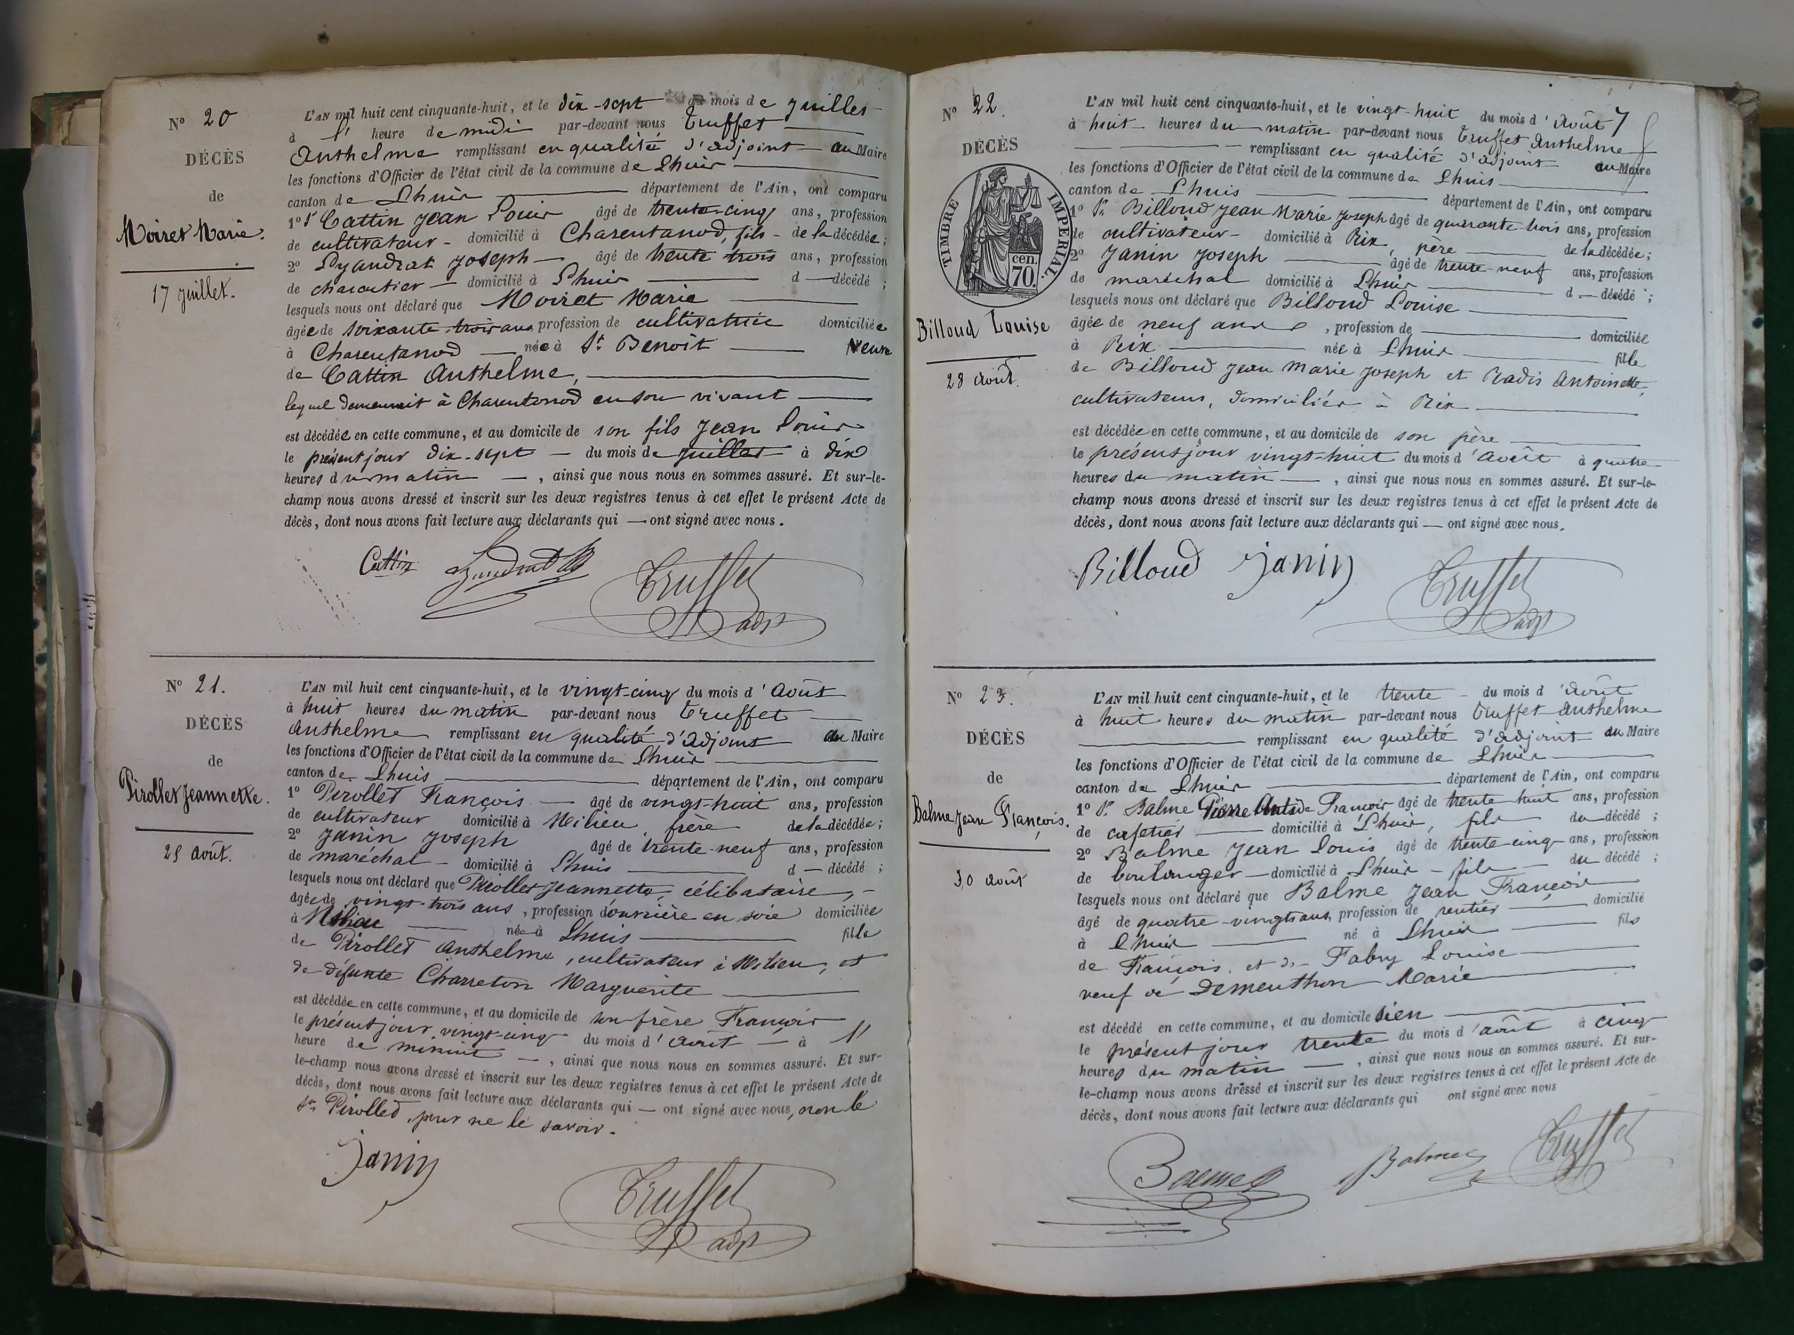 N° 20
DÉCÈS
de
Moiret Marie.
17 juillet.
L'AN mil huit cent cinquante-huit, et le dix-sept du mois de juillet
à 1' heure de midi par-devant nous Truffet
Anthelme remplissant en qualité d'adjoint au Maire
les fonctions d'Officier de l'état civil de la commune de Lhuis
canton de Lhuis département de l'Ain, ont comparu
1° Sr Cattin Jean Louis âgé de trente-cinq ans, profession
de cultivateur domicilié à Charentanod, fils de la décédée;
2° Dyandrat Joseph âgé de trente trois ans, profession
de charcutier domicilié à Lhuis d décédé ;
lesquels nous ont déclaré que Moiret Marie
âgée de soixante-trois ans profession de cultivatrice domiciliée
à Charentanod née à St Benoit Veuve
de Cattin Anthelme,
lequel demeurait à Charentanod en son vivant
est décédée en cette commune, et au domicile de son fils Jean Louis
le présent jour dix-sept du mois de juillet à dix
heures du matin , ainsi que nous nous en sommes assuré. Et sur-le-
champ nous avons dressé et inscrit sur les deux registres tenus à cet effet le présent Acte de
décès, dont nous avons fait lecture aux déclarants qui ont signé avec nous.
Cattin Truffet adjt
N° 21.
DÉCÈS
de
Pirollet Jeannette.
25 Août.
L'AN mil huit cent cinquante-huit, et le vingt-cinq du mois d'Août
à huit heures du matin par-devant nous Truffet
Anthelme remplissant en qualité d'adjoint au Maire
les fonctions d'Officier de l'état civil de la commune de Lhuis
canton de Lhuis département de l'Ain, ont comparu
1° Pirollet François âgé de vingt-huit ans, profession
de cultivateur domicilié à Milieu, frère de la décédée;
2° Janin Joseph âgé de trente-neuf ans, profession
de maréchal domicilié à Lhuis d décédé ;
lesquels nous ont déclaré que Pirollet Jeannette, célibataire,
âgée de vingt-trois ans, profession d'ouvrière en soie domiciliée
à Milieu née à Lhuis fille
de Pirollet Anthelme, cultivateur à Milieu, et
de défunte Charreton Marguerite
est décédée en cette commune, et au domicile de son frère François
le présent jour vingt-cinq du mois d'Août à 1'
heure de minuit , ainsi que nous nous en sommes assuré. Et sur-
le-champ nous avons dressé et inscrit sur les deux registres tenus à cet effet le présent Acte de
décès, dont nous avons fait lecture aux déclarants qui ont signé avec nous, non le
Sr Pirollet, pour ne le savoir.
Janin
Truffet adjt
N° 22.
DÉCÈS
TIMBRE IMPÉRIAL
cen. 70.
Billoud Louise
28 Août.
7
L'AN mil huit cent cinquante-huit, et le vingt-huit du mois d'Août
à huit heures du matin par-devant nous Truffet Anthelme
remplissant en qualité d'adjoint au Maire
les fonctions d'Officier de l'état civil de la commune de Lhuis
canton de Lhuis département de l'Ain, ont comparu
1° Sr Billoud Jean Marie Joseph âgé de quarante trois ans, profession
de cultivateur domicilié à Rix, père de la décédée;
2° Janin Joseph âgé de trente-neuf ans, profession
de maréchal domicilié à Lhuis d décédé ;
lesquels nous ont déclaré que Billoud Louise
âgée de neuf ans , profession de domiciliée
à Rix née à Lhuis fille
de Billoud Jean Marie Joseph et Radis Antoinette,
cultivateurs, domiciliés à Rix
est décédée en cette commune, et au domicile de son père
le présent jour vingt-huit du mois d'Août à quatre
heures du matin , ainsi que nous nous en sommes assuré. Et sur-le-
champ nous avons dressé et inscrit sur les deux registres tenus à cet effet le présent Acte de
décès, dont nous avons fait lecture aux déclarants qui ont signé avec nous.
Billoud Janin Truffet adjt
N° 23.
DÉCÈS
de
Balme Jean François.
30 Août
L'AN mil huit cent cinquante-huit, et le trente du mois d'Août
à huit heures du matin par-devant nous Truffet Anthelme
remplissant en qualité d'adjoint au Maire
les fonctions d'Officier de l'état civil de la commune de Lhuis
canton de Lhuis département de l'Ain, ont comparu
1° Sr Balme Pierre François âgé de trente huit ans, profession
de cafetier domicilié à Lhuis, fils du décédé ;
2° Balme Jean Louis âgé de trente-cinq ans, profession
de boulanger domicilié à Lhuis fils du décédé ;
lesquels nous ont déclaré que Balme Jean François
âgé de quatre-vingts ans, profession de rentier domicilié
à Lhuis né à Lhuis fils
de François et de Fabry Louise
veuf de Dementhon Marie
est décédé en cette commune, et au domicile sien
le présent jour trente du mois d'Août à cinq
heures du matin , ainsi que nous nous en sommes assuré. Et sur-
le-champ nous avons dressé et inscrit sur les deux registres tenus à cet effet le présent Acte de
décès, dont nous avons fait lecture aux déclarants qui ont signé avec nous
Balme Balme Truffet